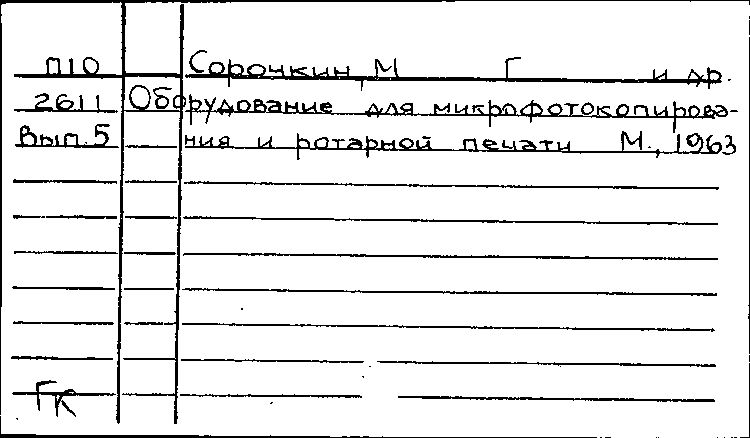 П10 Сорочкин, М Г и др.
2611 Оборудование для микрофотокопирова-
Вып.5 ния и ротарной печати М., 1963
ГК